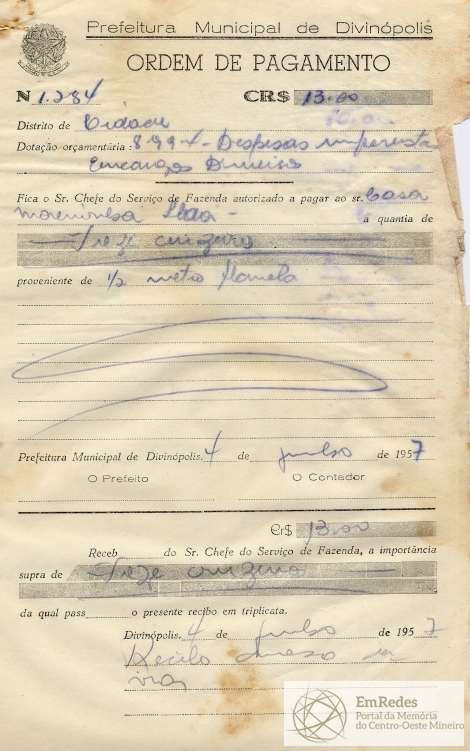 Prefeitura Municipal de Divinópolis
ORDEM DE PAGAMENTO
N 1.284 CR$ 13.00
Distrito de Cidade
Dotação orçamentária: 8.99.4 - Despesas
Encargos Diversos
Fica o Sr. Chefe do Serviço de Fazenda autorizado a pagar ao sr. Casa
Ltda - a quantia de
Treze cruzeiros
proveniente de 1/2 metro flanela
Prefeitura Municipal de Divinópolis, 4 de julho de 1957
O Prefeito O Contador
Cr$ 13.00
Receb do Sr. Chefe do Serviço de Fazenda, a importância
supra de Treze cruzeiros
da qual pass o presente recibo em triplicata.
Divinópolis, 4 de julho de 1957
Recibo anexo
EmRedes
Portal da Memória
do Centro-Oeste Mineiro